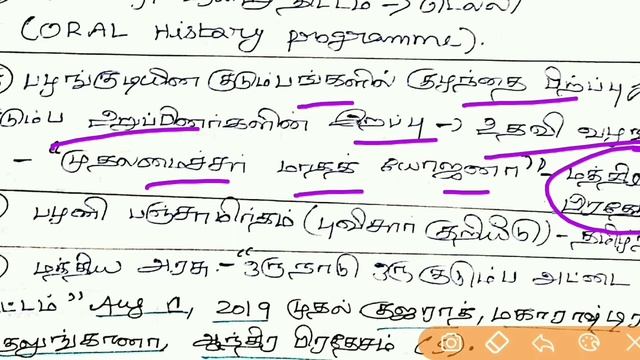 (ORAL History programme).
பழங்குடியின குடும்பங்களில் குழந்தை பிறப்பு
குடும்ப உறுப்பினர்களின் இறப்பு → உதவி
- "முதலமைச்சர் மாதக் யோஜனா" - மத்திய
பிரதேச
பழனி பஞ்சாமிர்தம் (புவிசார் குறியீடு) - தமிழ
மத்திய அரசு - "ஒரு நாடு ஒரு குடும்ப அட்டை
திட்டம்" Aug 1, 2019 முதல் குஜராத், மகாராஷ்டிரா
தெலுங்கானா, ஆந்திர பிரதேசம்